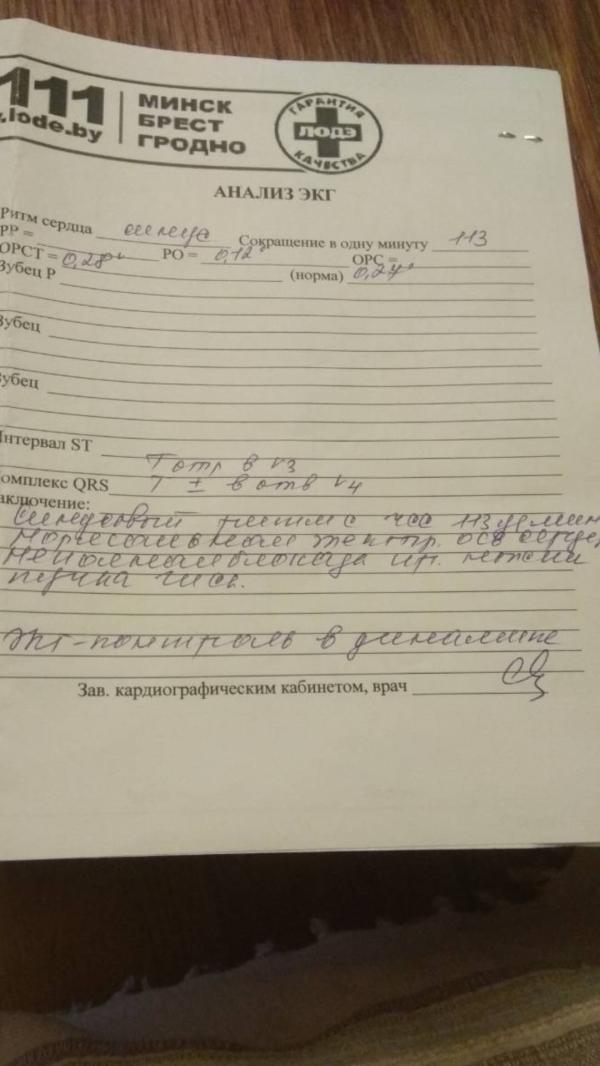 111
МИНСК
.lode.by
БРЕСТ
ГРОДНО
ГАРАНТИЯ
ЛОДЭ
КАЧЕСТВА
АНАЛИЗ ЭКГ
Ритм сердца синус Сокращение в одну минуту 113
РР =
ОРСТ = 0,28" РО = 0,12 ОРС =
Зубец Р (норма) 0,27"
Зубец
Зубец
Интервал ST
Т отр в V3
Комплекс QRS Т ± в отв V4
Заключение:
Синусовый ритм с ЧСС 113 уд мин
Нормальная электр. ось сердца,
Неполная блокада пр. ножки
пучка Гиса.
ЭКГ-контроль в динамике
Зав. кардиографическим кабинетом, врач